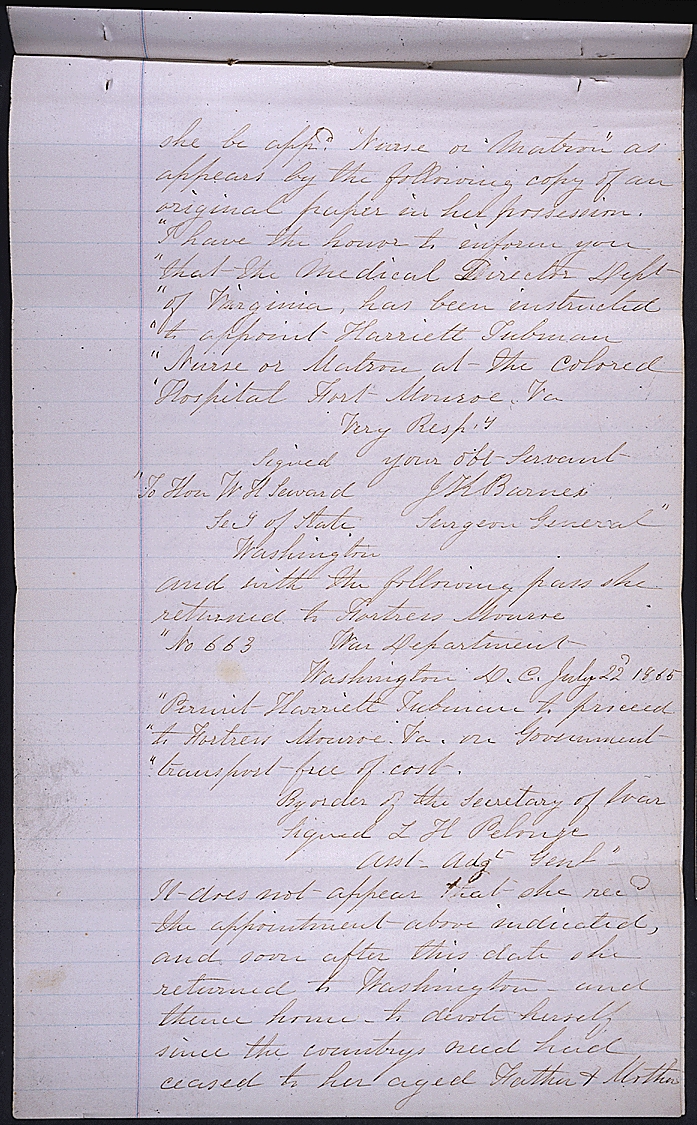 she be appd "Nurse or Matron" as
appears by the following copy of an
original paper in her possession.
"I have the honor to inform you
"that the Medical Director Dept
"of Virginia, has been instructed
"to appoint Harriett Tubman
"Nurse or Matron at the Colored
"Hospital Fort Monroe. Va
Very Resply
Signed your obt Servant
"To Hon W H Seward J K Barnes
Secy of State Surgeon General"
Washington
and with the following pass she
returned to Fortress Monroe
"No 663 War Department
Washington D. C. July 22d 1865
"Permit Harriett Tubman to proceed
"to Fortress Monroe. Va. on Government
"transport free of cost.
By order of the Secretary of War
Signed L H Pelouze
Asst Adgt Genl"
It does not appear that she recd
the appointment above indicated,
and soon after this date she
returned to Washington and
thence home to devote herself
since the countrys need had
ceased to her aged Father & Mother